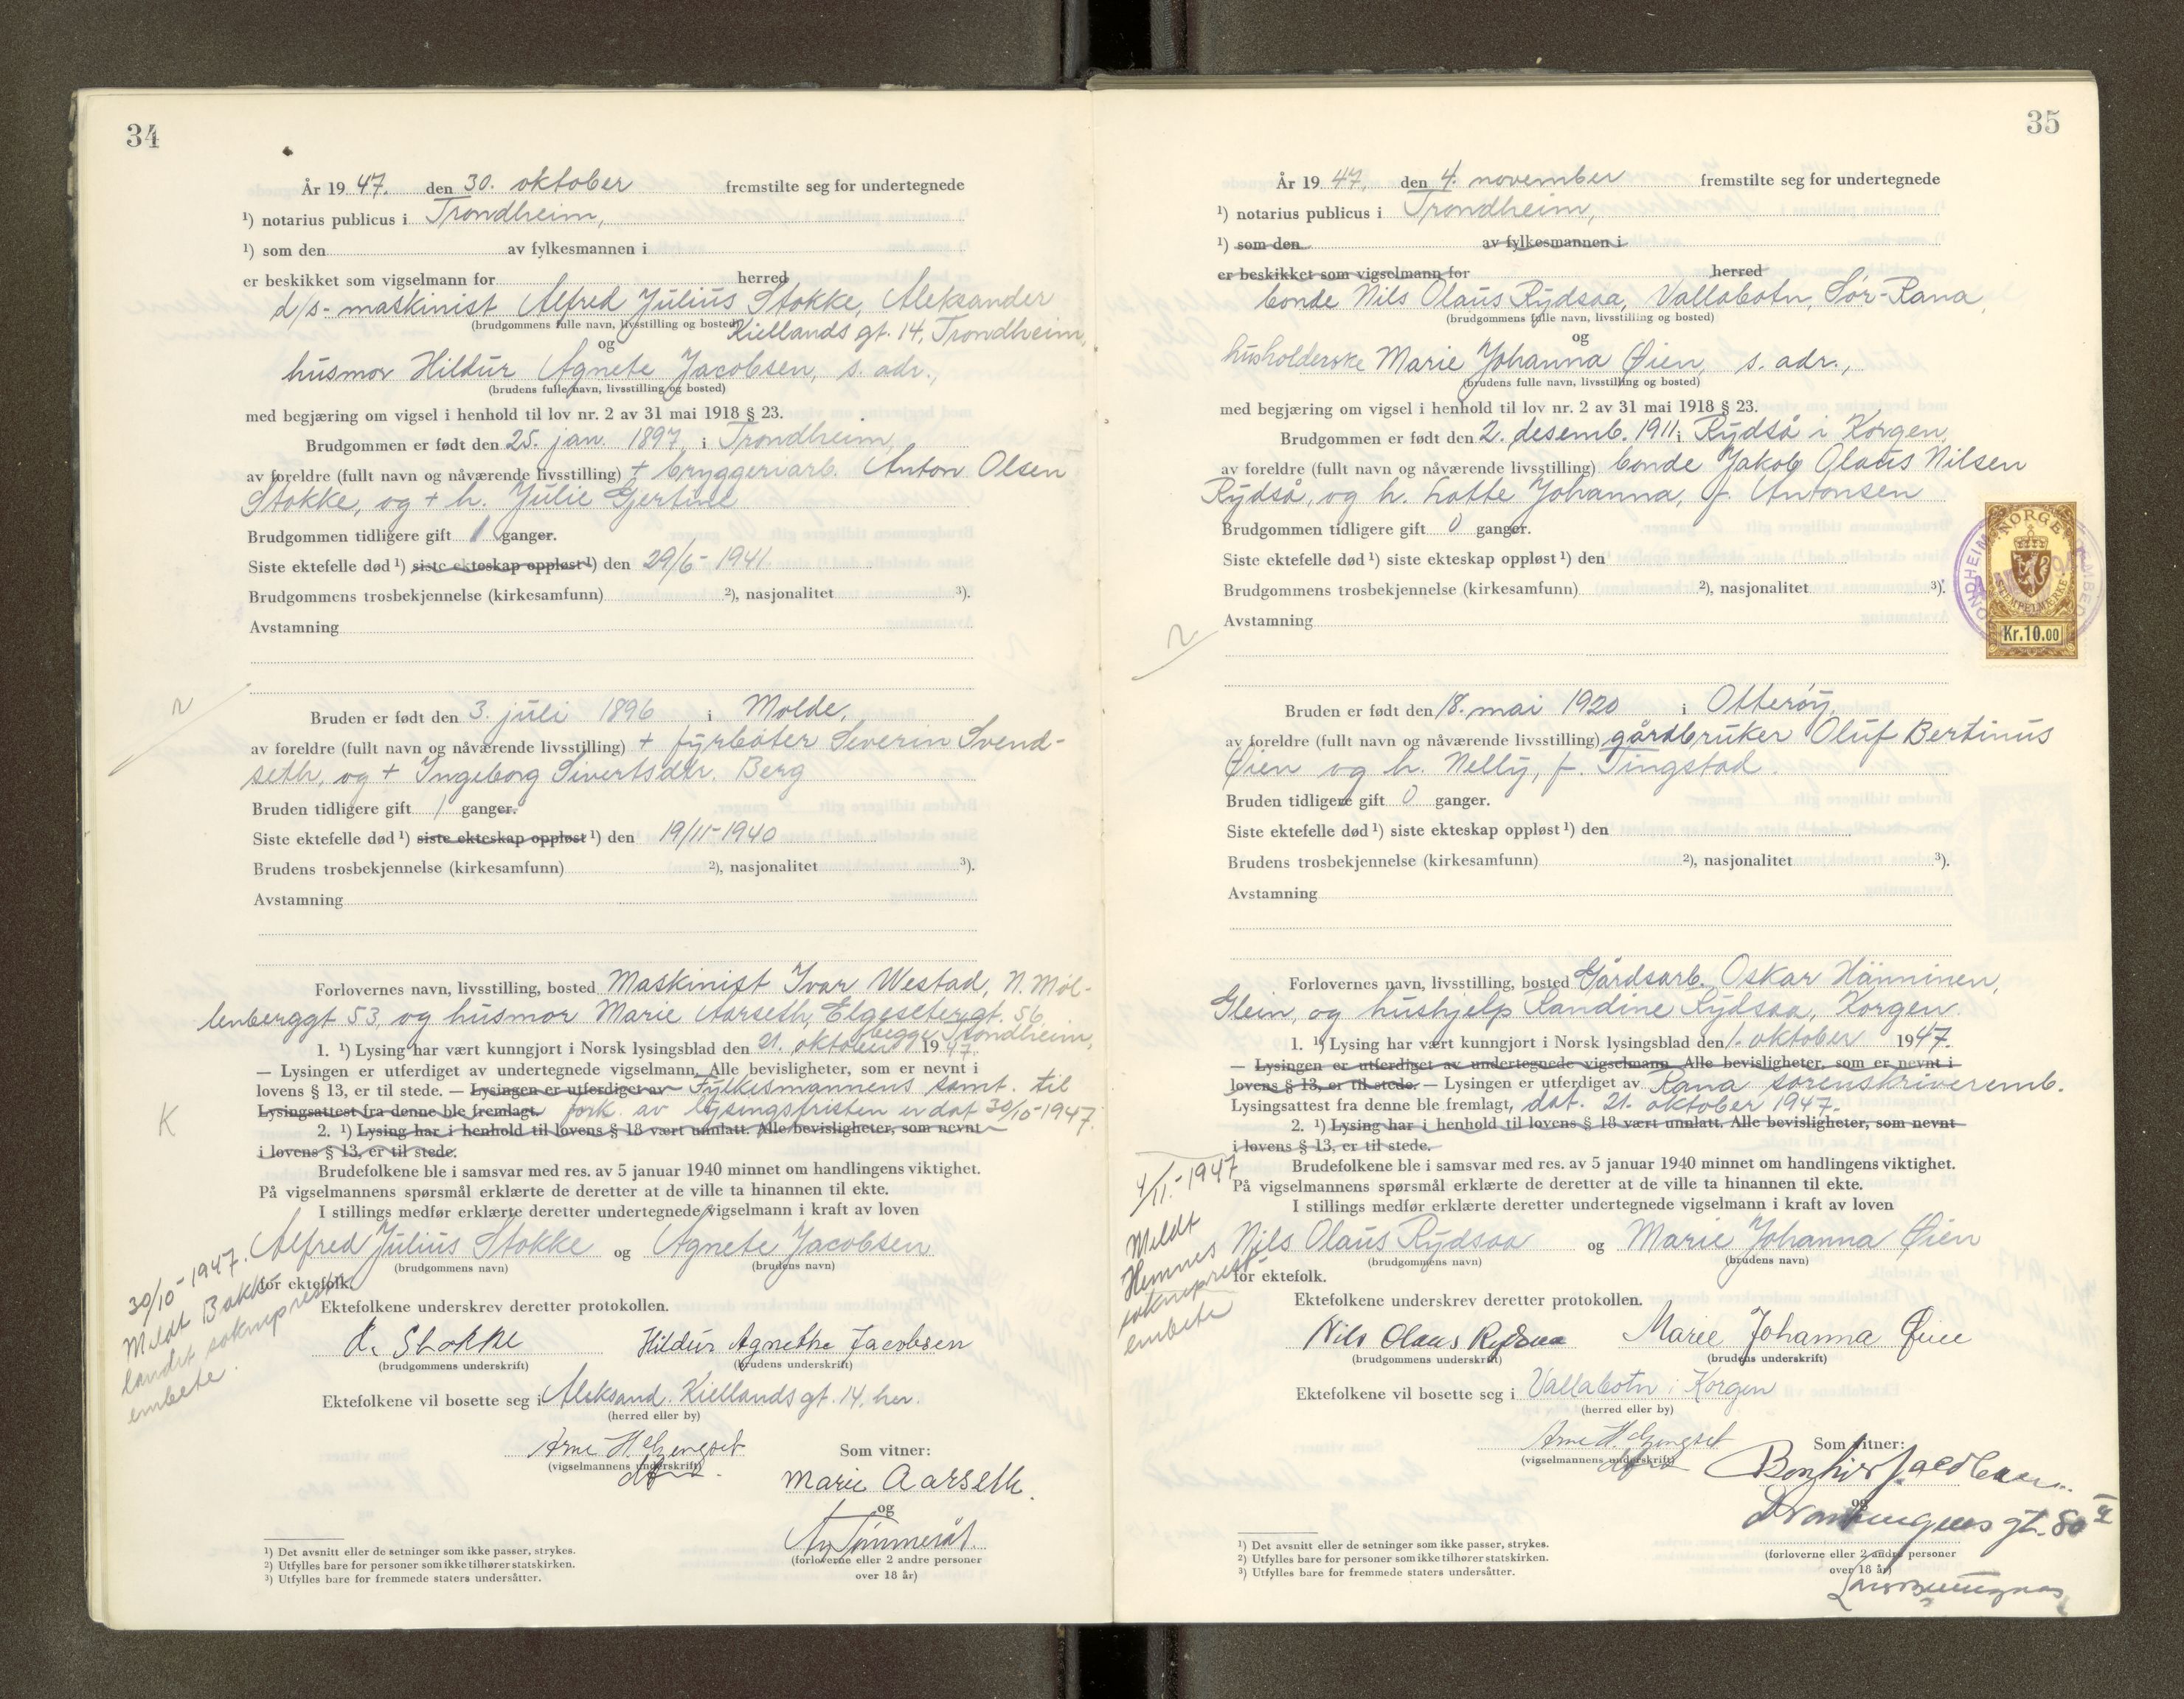 34
År 19 47. den 30. oktober fremstilte seg for undertegnede
¹) notarius publicus i Trondheim,
¹) som den av fylkesmannen i
er beskikket som vigselmann for herred
d/s- maskinist Alfred Julius Stokke, Aleksander
(brudgommens fulle navn, livsstilling og bosted) Kiellands gt. 14, Trondheim,
og
husmor Hildur Agnete Jacobsen, s. adr.,
(brudens fulle navn, livsstilling og bosted)
med begjæring om vigsel i henhold til lov nr. 2 av 31 mai 1918 § 23.
Brudgommen er født den 25. jan. 1897, i Trondheim,
av foreldre (fullt navn og nåværende livsstilling) + bryggeriarb. Anton Olsen
Stokke, og + h. Julie Gjertine
Brudgommen tidligere gift 1 ganger.
Siste ektefelle død ¹) siste ekteskap oppløst ¹) den 29/6- 1941.
Brudgommens trosbekjennelse (kirkesamfunn) ²), nasjonalitet ³).
Avstamning
Bruden er født den 3. juli 1896 i Molde,
av foreldre (fullt navn og nåværende livsstilling) + fyrbøter Severin Svend-
seth, og + Ingeborg Sivertsdtr. Berg
Bruden tidligere gift 1 ganger.
Siste ektefelle død ¹) siste ekteskap oppløst ¹) den 19/11-1940
Brudens trosbekjennelse (kirkesamfunn) ²), nasjonalitet ³).
Avstamning
Forlovernes navn, livsstilling, bosted Maskinist Ivar Westad, N. Møl-
lenberggt 53, og husmor Marie Aarseth, Elgesetergt. 56,
begge Trondheim,
1. ¹) Lysing har vært kunngjort i Norsk lysingsblad den 21. oktober 19 47.
— Lysingen er utferdiget av undertegnede vigselmann. Alle bevisligheter, som er nevnt i
lovens § 13, er til stede. — Lysingen er utferdiget av Fylkesmannens samt. til
Lysingsattest fra denne ble fremlagt. fork. av lysingsfristen er dat 30/10-1947.
2. ¹) Lysing har i henhold til lovens § 18 vært unnlatt. Alle bevisligheter, som nevnt
i lovens § 13, er til stede.
K
Brudefolkene ble i samsvar med res. av 5 januar 1940 minnet om handlingens viktighet.
På vigselmannens spørsmål erklærte de deretter at de ville ta hinannen til ekte.
I stillings medfør erklærte deretter undertegnede vigselmann i kraft av loven
Alfred Julius Stokke og Agnete Jacobsen
(brudgommens navn) (brudens navn)
for ektefolk.
30/10-1947.
Meldt Bakke
landet sokneprest-
embete.
Ektefolkene underskrev deretter protokollen.
A. Stokke Hildur Agnethe Jacobsen
(brudgommens underskrift) (brudens underskrift)
Ektefolkene vil bosette seg i Aleksand. Kiellandsgt. 14, her.
(herred eller by)
(vigselmannens underskrift)
Som vitner:
Marie Aarseth.
og
(forloverne eller 2 andre personer
over 18 år)
¹) Det avsnitt eller de setninger som ikke passer, strykes.
²) Utfylles bare for personer som ikke tilhører statskirken.
³) Utfylles bare for fremmede staters undersåtter.
35
År 19 47, den 4. november fremstilte seg for undertegnede
¹) notarius publicus i Trondheim,
¹) som den av fylkesmannen i
er beskikket som vigselmann for herred
bonde Nils Olaus Rydsaa, Vallabotn, Sør-Rana,
(brudgommens fulle navn, livsstilling og bosted)
og
husholderske Marie Johanna Øien, s. adr.,
(brudens fulle navn, livsstilling og bosted)
med begjæring om vigsel i henhold til lov nr. 2 av 31 mai 1918 § 23.
Brudgommen er født den 2. desemb. 1911 i Rydså i Korgen,
av foreldre (fullt navn og nåværende livsstilling) bonde Jakob Olaus Nilsen
Rydså, og h. Lotte Johanna, f. Antonsen
Brudgommen tidligere gift 0 ganger.
Siste ektefelle død ¹) siste ekteskap oppløst ¹) den
Brudgommens trosbekjennelse (kirkesamfunn) ²), nasjonalitet ³).
Avstamning
NORGE
STEMPELMERKE
Kr.10.00
Bruden er født den 18. mai 1920 i Otterøy,
av foreldre (fullt navn og nåværende livsstilling) gårdbruker Oluf Bertinus
Øien og h. Nelly, f. Tingstad.
Bruden tidligere gift 0 ganger.
Siste ektefelle død ¹) siste ekteskap oppløst ¹) den
Brudens trosbekjennelse (kirkesamfunn) ²), nasjonalitet ³).
Avstamning
Forlovernes navn, livsstilling, bosted Gårdsarb. Oskar Hänninen,
Glein, og hushjelp Randine Rydsaa, Korgen.
1. ¹) Lysing har vært kunngjort i Norsk lysingsblad den 1. oktober 19 47.
— Lysingen er utferdiget av undertegnede vigselmann. Alle bevisligheter, som er nevnt i
lovens § 13, er til stede. — Lysingen er utferdiget av Rana sorenskriveremb.
Lysingsattest fra denne ble fremlagt, dat. 21. oktober 1947.
2. ¹) Lysing har i henhold til lovens § 18 vært unnlatt. Alle bevisligheter, som nevnt
i lovens § 13, er til stede.
Brudefolkene ble i samsvar med res. av 5 januar 1940 minnet om handlingens viktighet.
På vigselmannens spørsmål erklærte de deretter at de ville ta hinannen til ekte.
I stillings medfør erklærte deretter undertegnede vigselmann i kraft av loven
Nils Olaus Rydsaa og Marie Johanna Øien
(brudgommens navn) (brudens navn)
for ektefolk.
4/11.-1947
Meldt
Hemnes
sokneprest-
embete
Ektefolkene underskrev deretter protokollen.
Nils Olaus Rydsaa Marie Johanna Øien
(brudgommens underskrift) (brudens underskrift)
Ektefolkene vil bosette seg i Vallabotn i Korgen
(herred eller by)
(vigselmannens underskrift)
Som vitner:
og
(forloverne eller 2 andre personer
over 18 år)
¹) Det avsnitt eller de setninger som ikke passer, strykes.
²) Utfylles bare for personer som ikke tilhører statskirken.
³) Utfylles bare for fremmede staters undersåtter.